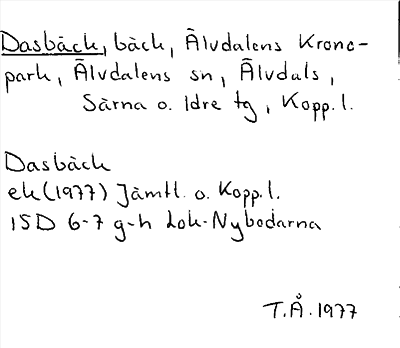 Dasbäck, bäck, Älvdalens Krono-
park, Älvdalens sn, Älvdals,
Särna o. Idre tg, Kopp. l.
Dasbäck
ek (1977) Jämtl. o. Kopp. l.
15D 6-7 g-h Lok-Nybodarna
T.Å. 1977